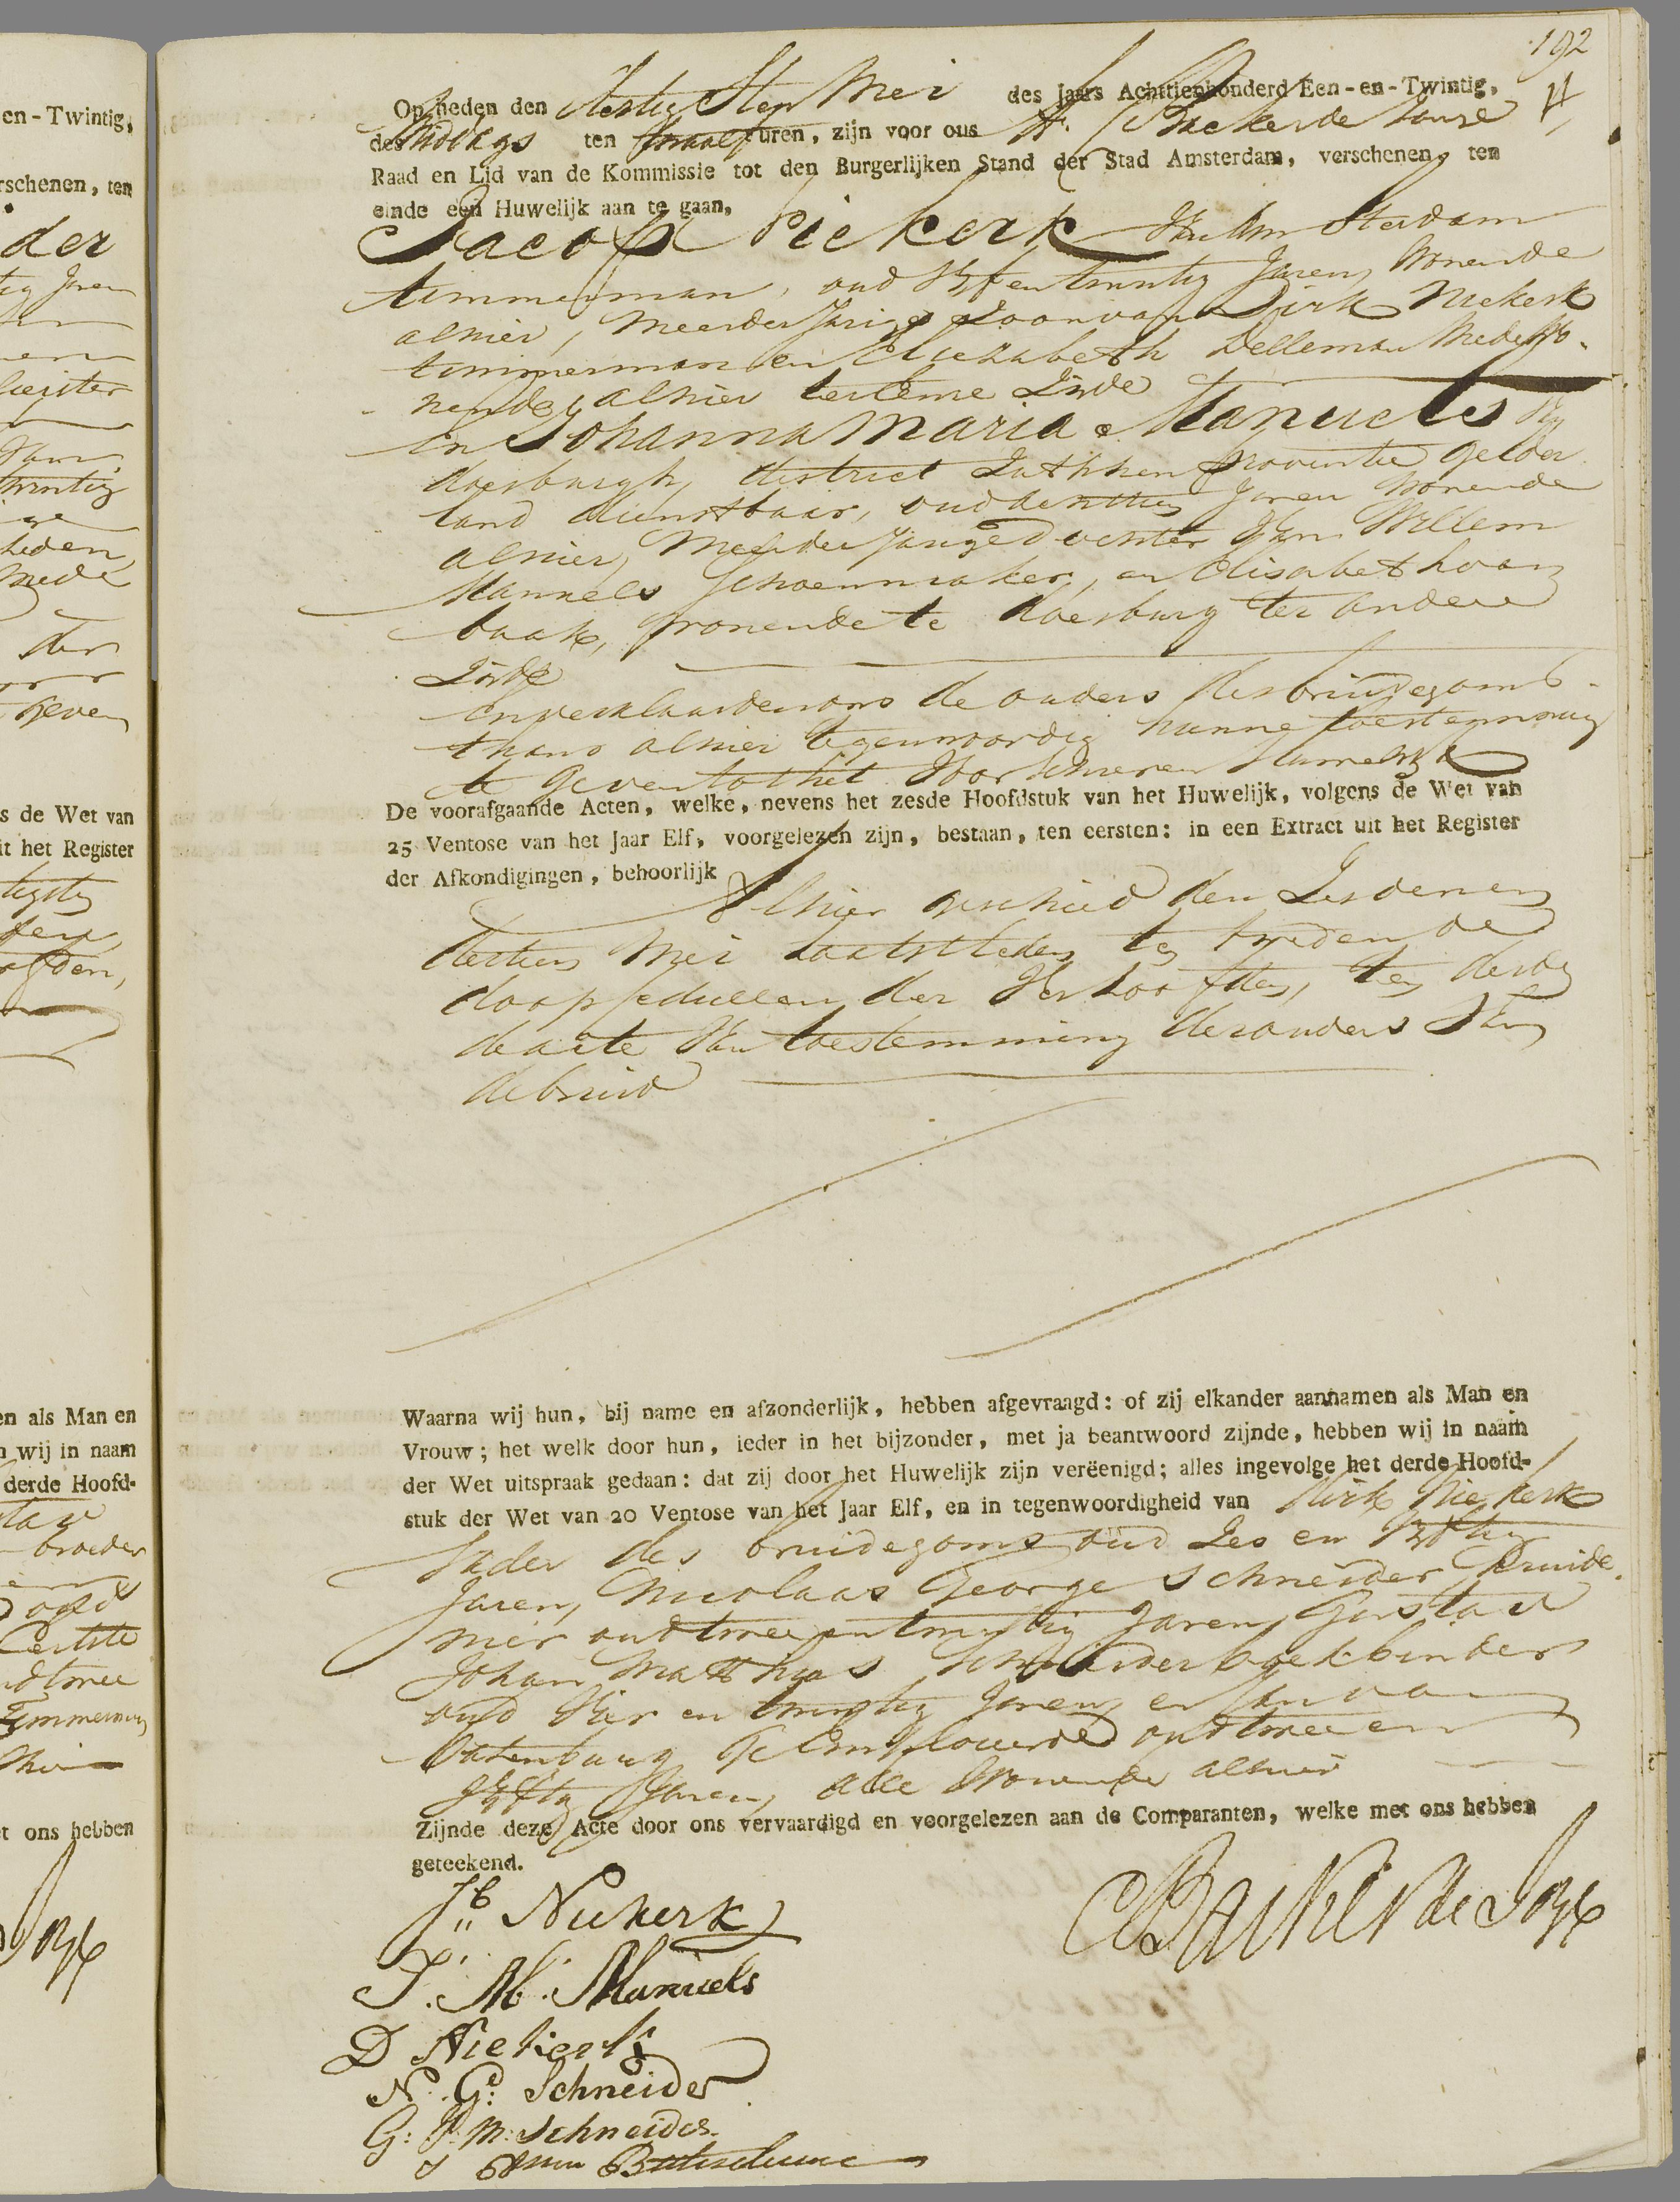 192
Op heden den dertigsten Mei des Jaars Achttienhonderd Een-en-Twintig,
des Middags ten twaalf uren, zijn voor ons Backer de Jonge
Raad en Lid van de Kommissie tot den Burgerlijken Stand der Stad Amsterdam, verschenen, ten
einde een Huwelijk aan te gaan,
Jacob Niekerk Van Amsterdam
timmerman, oud Vyf en twintig Jaren, Wonende
alhier, meerderjarige Zoon van Dirk Niekerk
timmerman en Elisabeth Delleman Mede Wo-
nende alhier ter eene Zyde
en Johanna Maria Manuels Van
doesburgh, district Zutphen provintie gelder
land dienstbaar, oud dertig Jaren Wonende
alhier, Meerderjarige dochter Van Willem
Manuels schoenmaker, en Elisabeth
Wonende te doesburg ter andere
Zyde
en verklaarden ons de ouders des bruidegoms
thans alhier tegenwoordig hunne toestemming
te geven tot het Voorschreven Huwelyk
De voorafgaande Acten, welke, nevens het zesde Hoofdstuk van het Huwelijk, volgens de Wet van
25 Ventose van het Jaar Elf, voorgelezen zijn, bestaan, ten eersten: in een Extract uit het Register
der Afkondigingen, behoorlijk
Alhier geschied den Zes den en
dertien Mei laatstleden ten tweden de
doopcedullen der Verloofden, ten derden
de acte Van toestemming der ouders Van
de bruid
Waarna wij hun, bij name en afzonderlijk, hebben afgevraagd: of zij elkander aannamen als Man en
Vrouw; het welk door hun, ieder in het bijzonder, met ja beantwoord zijnde, hebben wij in naam
der Wet uitspraak gedaan: dat zij door het Huwelijk zijn verëenigd; alles ingevolge het derde Hoofd-
stuk der Wet van 20 Ventose van het Jaar Elf, en in tegenwoordigheid van Dirk Niekerk
Vader des bruidegoms oud Zes en Vyftig
Jaren, Nicolaas George Schneider Kruide
nier oud twee en twintig Jaren, Gustav
Johan Matthias Schneider boekbinder
oud Vier en twintig Jaren, en Jan van
geemploieerde oud twee en
Vyftig Jaren, alle Wonende alhier
Zijnde deze Acte door ons vervaardigd en voorgelezen aan de Comparanten, welke met ons hebben
geteekend.
Jb Niekerk
C Backer de Jonge
J. M. Manuels
D Niekerk
N. G: Schneider
G: J: M: Schneider